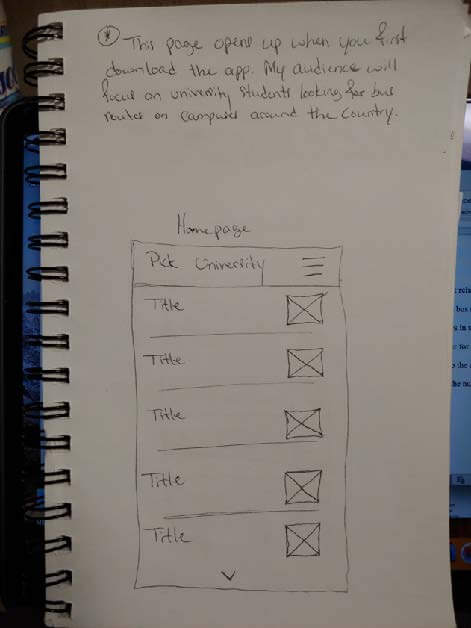 This page opens up when you first
download the app. My audience will
focus on university students looking for bus
routes on campuses around the country.
Homepage
Pick University
Title
Title
Title
Title
Title